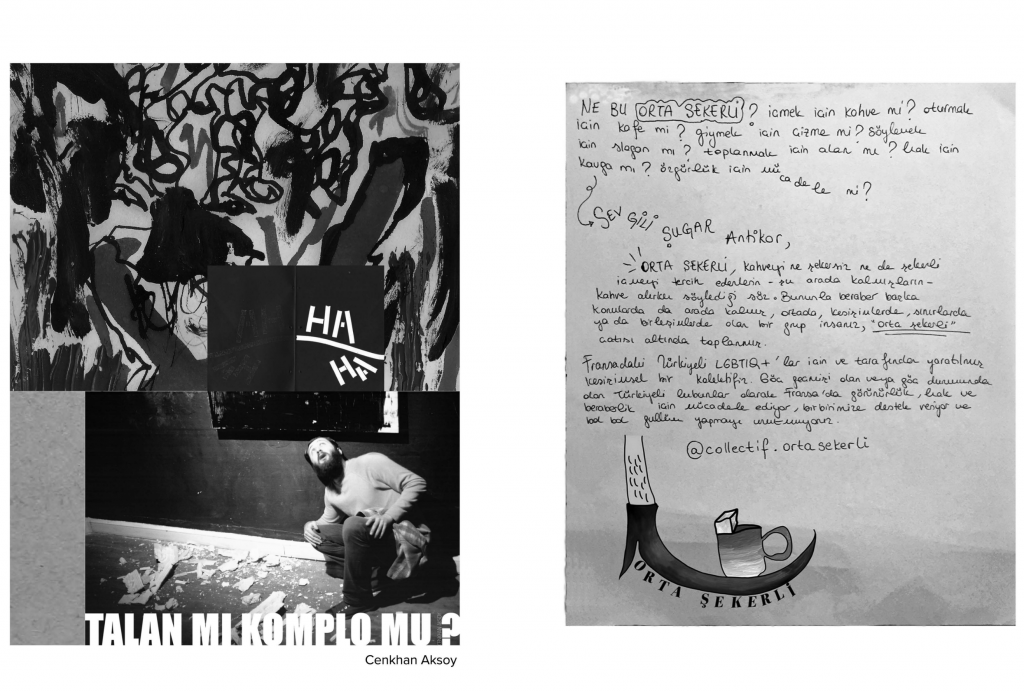 HA
HA
TALAN MI KOMPLO MU ?
Cenkhan Aksoy
NE BU ORTA ŞEKERLİ? içmek için kahve mi? oturmak
için kafe mi? giymek için çizme mi? söylemek
için slogan mı? toplanmak için alan mı? hak için
kavga mı? özgürlük için mücadele mi?
SEVGİLİ ŞUGAR Antikor,
ORTA ŞEKERLİ, kahveyi ne şekersiz ne de şekerli
içmeyi tercih edenlerin - şu arada kalmışların -
kahve alırken söylediği söz. Bununla beraber başka
konularda da arada kalmış, ortada, kesişimlerde, sınırlarda
ya da birleşimlerde olan bir grup insanız, "orta şekerli"
çatısı altında toplanmış.
Fransadaki Türkiyeli LGBTIQ+'lar için ve tarafından yaratılmış
kesişimsel bir kolektifiz. Göç geçmişi olan veya göç durumunda
olan Türkiyeli lubunlar olarak Fransa'da görünürlük, hak ve
beraberlik için mücadele ediyor, birbirimize destek veriyor ve
bol bol gullüm yapmayı unutmuyoruz.
@collectif.ortasekerli
ORTA ŞEKERLİ